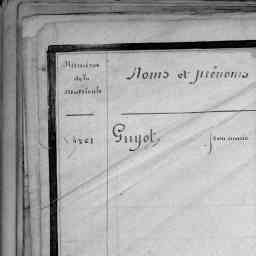 Numéros
de la
matricule
Noms et prénoms
Guyot,